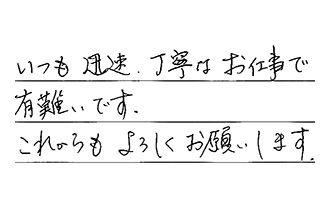 いつも迅速、丁寧なお仕事で
有難いです。
これからもよろしくお願いします。